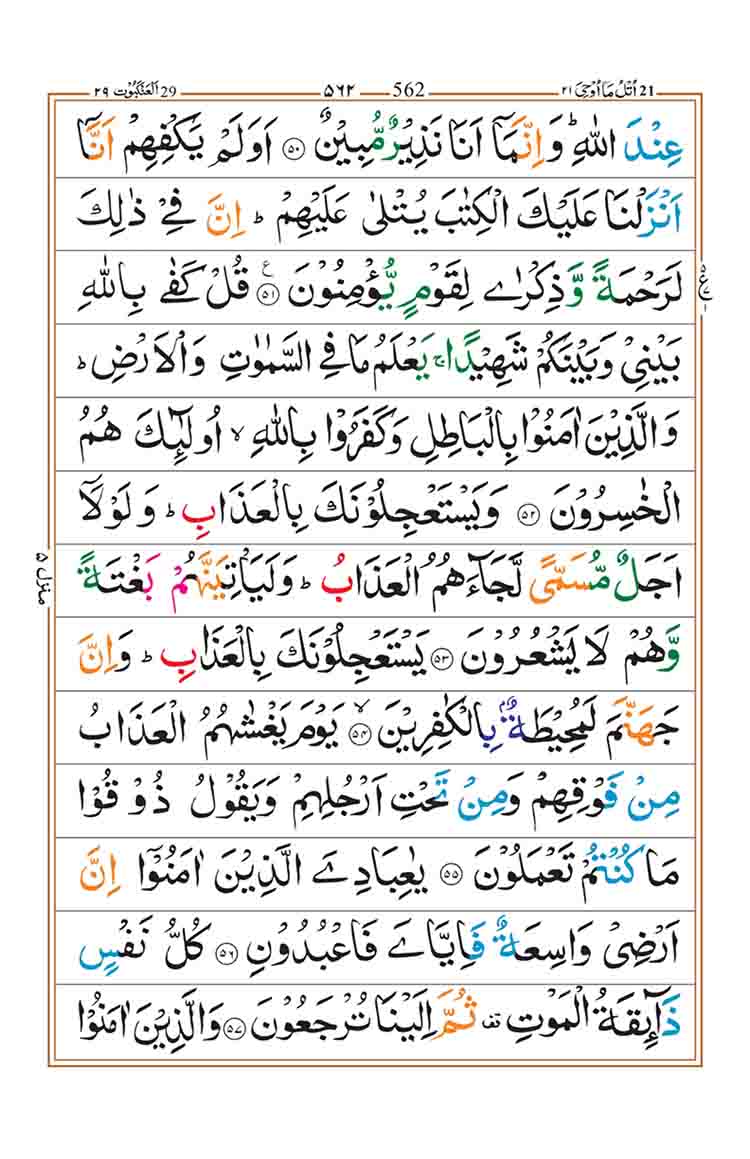 ٢٩ اَلْعَنْكَبُوْت 29
۵۶۲ 562
٢١ اُتْلُ مَا اُوْحِیَ 21
عِنْدَ اللّٰهِ ؕ وَاِنَّمَاۤ اَنَا نَذِیْرٌ مُّبِیْنٌ ۝۵۰ اَوَلَمْ یَكْفِهِمْ اَنَّاۤ
اَنْزَلْنَا عَلَیْكَ الْكِتٰبَ یُتْلٰی عَلَیْهِمْ ؕ اِنَّ فِیْ ذٰلِكَ
لَرَحْمَةً وَّذِكْرٰی لِقَوْمٍ یُّؤْمِنُوْنَ ۝۵۱ قُلْ كَفٰی بِاللّٰهِ
بَیْنِیْ وَبَیْنَكُمْ شَهِیْدًا ۚ یَعْلَمُ مَا فِی السَّمٰوٰتِ وَالْاَرْضِ ؕ
وَالَّذِیْنَ اٰمَنُوْا بِالْبَاطِلِ وَكَفَرُوْا بِاللّٰهِ ۙ اُولٰٓئِكَ هُمُ
الْخٰسِرُوْنَ ۝۵۲ وَیَسْتَعْجِلُوْنَكَ بِالْعَذَابِ ؕ وَلَوْلَاۤ
اَجَلٌ مُّسَمًّی لَّجَآءَهُمُ الْعَذَابُ ؕ وَلَیَاْتِیَنَّهُمْ بَغْتَةً
وَّهُمْ لَا یَشْعُرُوْنَ ۝۵۳ یَسْتَعْجِلُوْنَكَ بِالْعَذَابِ ؕ وَاِنَّ
جَهَنَّمَ لَمُحِیْطَةٌۢ بِالْكٰفِرِیْنَ ۝۵۴ ۙ یَوْمَ یَغْشٰىهُمُ الْعَذَابُ
مِنْ فَوْقِهِمْ وَمِنْ تَحْتِ اَرْجُلِهِمْ وَیَقُوْلُ ذُوْقُوْا
مَا كُنْتُمْ تَعْمَلُوْنَ ۝۵۵ یٰعِبَادِیَ الَّذِیْنَ اٰمَنُوْۤا اِنَّ
اَرْضِیْ وَاسِعَةٌ فَاِیَّایَ فَاعْبُدُوْنِ ۝۵۶ كُلُّ نَفْسٍ
ذَآئِقَةُ الْمَوْتِ ۫ ثُمَّ اِلَیْنَا تُرْجَعُوْنَ ۝۵۷ وَالَّذِیْنَ اٰمَنُوْا
منزل ۵